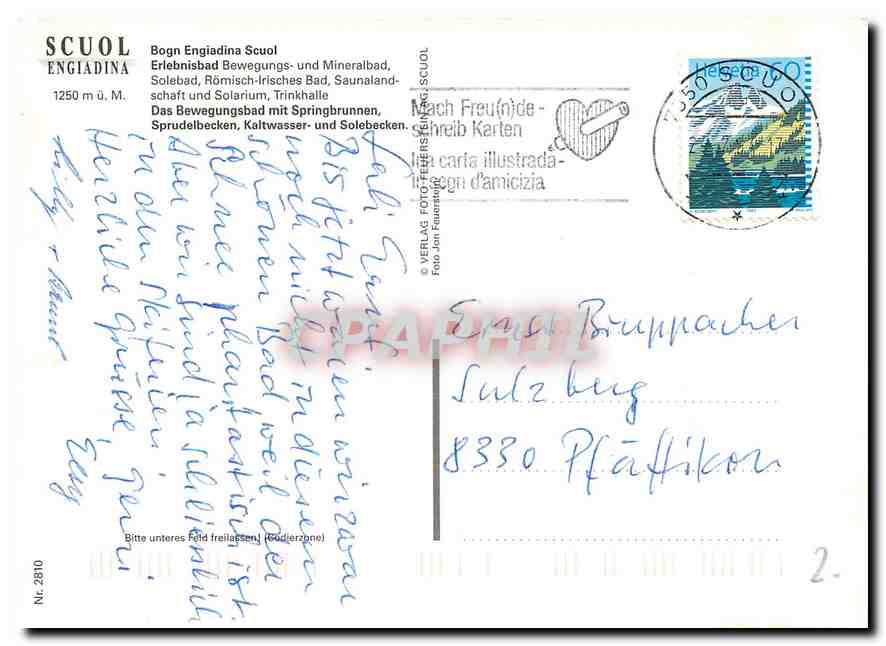 SCUOL
ENGIADINA
1250 m ü. M.
Bogn Engiadina Scuol
Erlebnisbad Bewegungs- und Mineralbad,
Solebad, Römisch-Irisches Bad, Saunaland-
schaft und Solarium, Trinkhalle
Das Bewegungsbad mit Springbrunnen,
Sprudelbecken, Kaltwasser- und Solebecken.
© VERLAG FOTO FEUERSTEIN AG, SCUOL
Foto Jon Feuerstein
Mach Freu(n)de-
schreib Karten
Ina carta illustrada-
in segn d'amicizia
Helvetia 60
7550 SCUOL
Bis jetzt waren wir zwar
noch nicht in diesem
schönen Bad weil der
Schnee phantastisch ist.
Aber wir sind ja schliesslich
in den Skiferien!
Herzliche Grüesse,
Elly
Bruppacher
Sulzberg
8330 Pfäffikon
CPAPHIL
Bitte unteres Feld freilassen! (Codierzone)
Nr. 2810
2.-